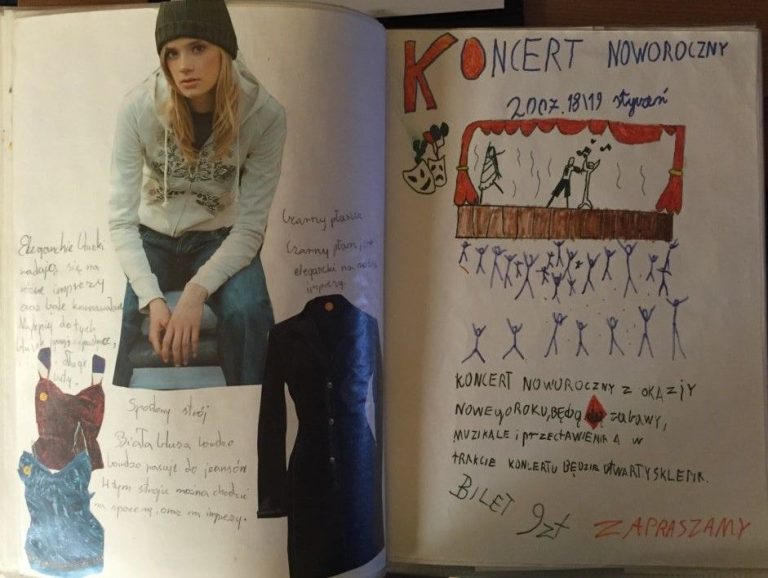 Eleganckie bluzki
nadają się na
różne imprezy
oraz bale karnawałowe
Najlepiej do tych
bluzek
długie
buty.
Czarny płaszcz
Czarny płaszcz jest
elegancki na
imprezy.
Sportowy strój
Biała bluza bardzo
bardzo pasuje do jeansów
W tym stroju można chodzić
na spacery oraz na imprezy.
KONCERT NOWOROCZNY
2007. 18\19 styczeń
KONCERT NOWOROCZNY Z OKAZJY
NOWEgO ROKU, BĘDĄ zabawy,
MUZIKALE i przecTAWIENIA A W
TRAKCIE KONCERTU BĘDZIE OTWARTY SKLEPIK.
BILET 9zł ZAPRASZAMY